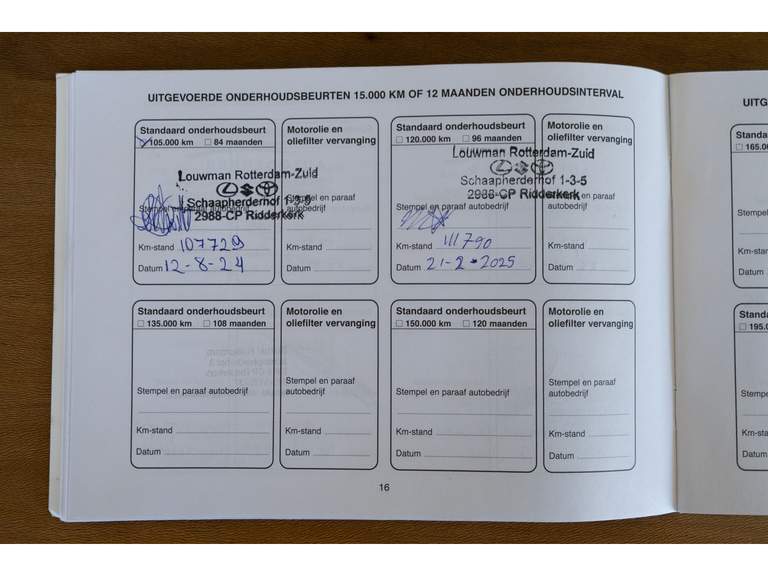 UITGEVOERDE ONDERHOUDSBEURTEN 15.000 KM OF 12 MAANDEN ONDERHOUDSINTERVAL
Standaard onderhoudsbeurt
105.000 km 84 maanden
Louwman Rotterdam-Zuid
Schaapherderhof 1-3-5
2988-CP Ridderkerk
Km-stand 107729
Datum 12-8-24
Motorolie en
oliefilter vervanging
Stempel en paraaf
autobedrijf
Km-stand
Datum
Standaard onderhoudsbeurt
120.000 km 96 maanden
Louwman Rotterdam-Zuid
Schaapherderhof 1-3-5
2988-CP Ridderkerk
Stempel en paraaf autobedrijf
Km-stand 111790
Datum 21-2-2025
Motorolie en
oliefilter vervanging
Stempel en paraaf
autobedrijf
Km-stand
Datum
Standaard onderhoudsbeurt
135.000 km 108 maanden
Stempel en paraaf autobedrijf
Km-stand
Datum
Motorolie en
oliefilter vervanging
Stempel en paraaf
autobedrijf
Km-stand
Datum
Standaard onderhoudsbeurt
150.000 km 120 maanden
Stempel en paraaf autobedrijf
Km-stand
Datum
Motorolie en
oliefilter vervanging
Stempel en paraaf
autobedrijf
Km-stand
Datum
16
UITG
Standa
165.0
Stempe
Km-sta
Datum
Standa
195.0
Stempe
Km-sta
Datum